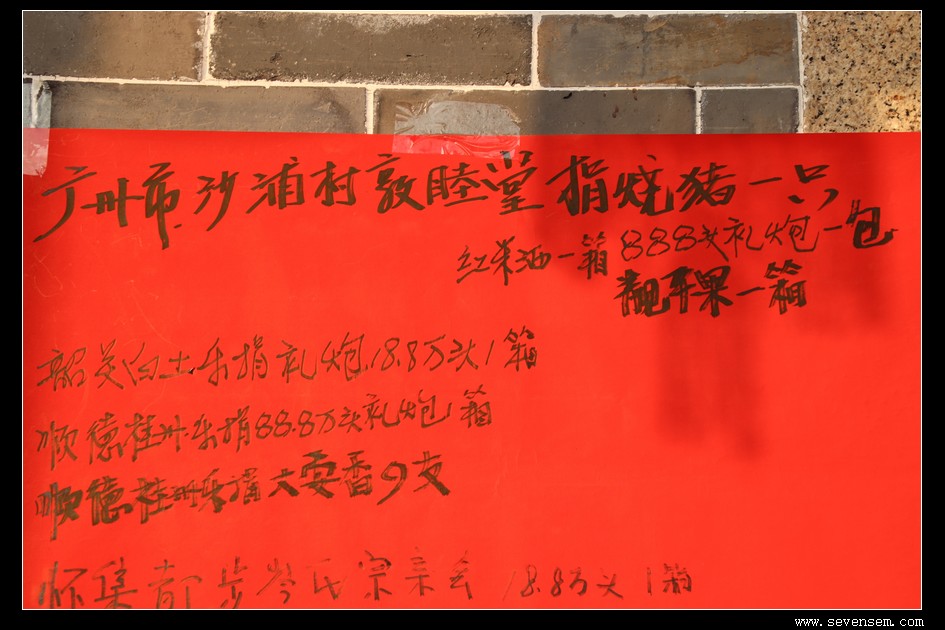 广州市沙浦村敦睦堂捐烧猪一只
红米酒一箱 888头礼炮一包
靓苹果一箱
韶关白土岑捐礼炮18.8万头1箱
顺德桂州岑捐88.8万头礼炮1箱
顺德桂州岑捐大要香9支
怀集都步岑氏宗亲会 18.8万头1箱
www.sevensem.com